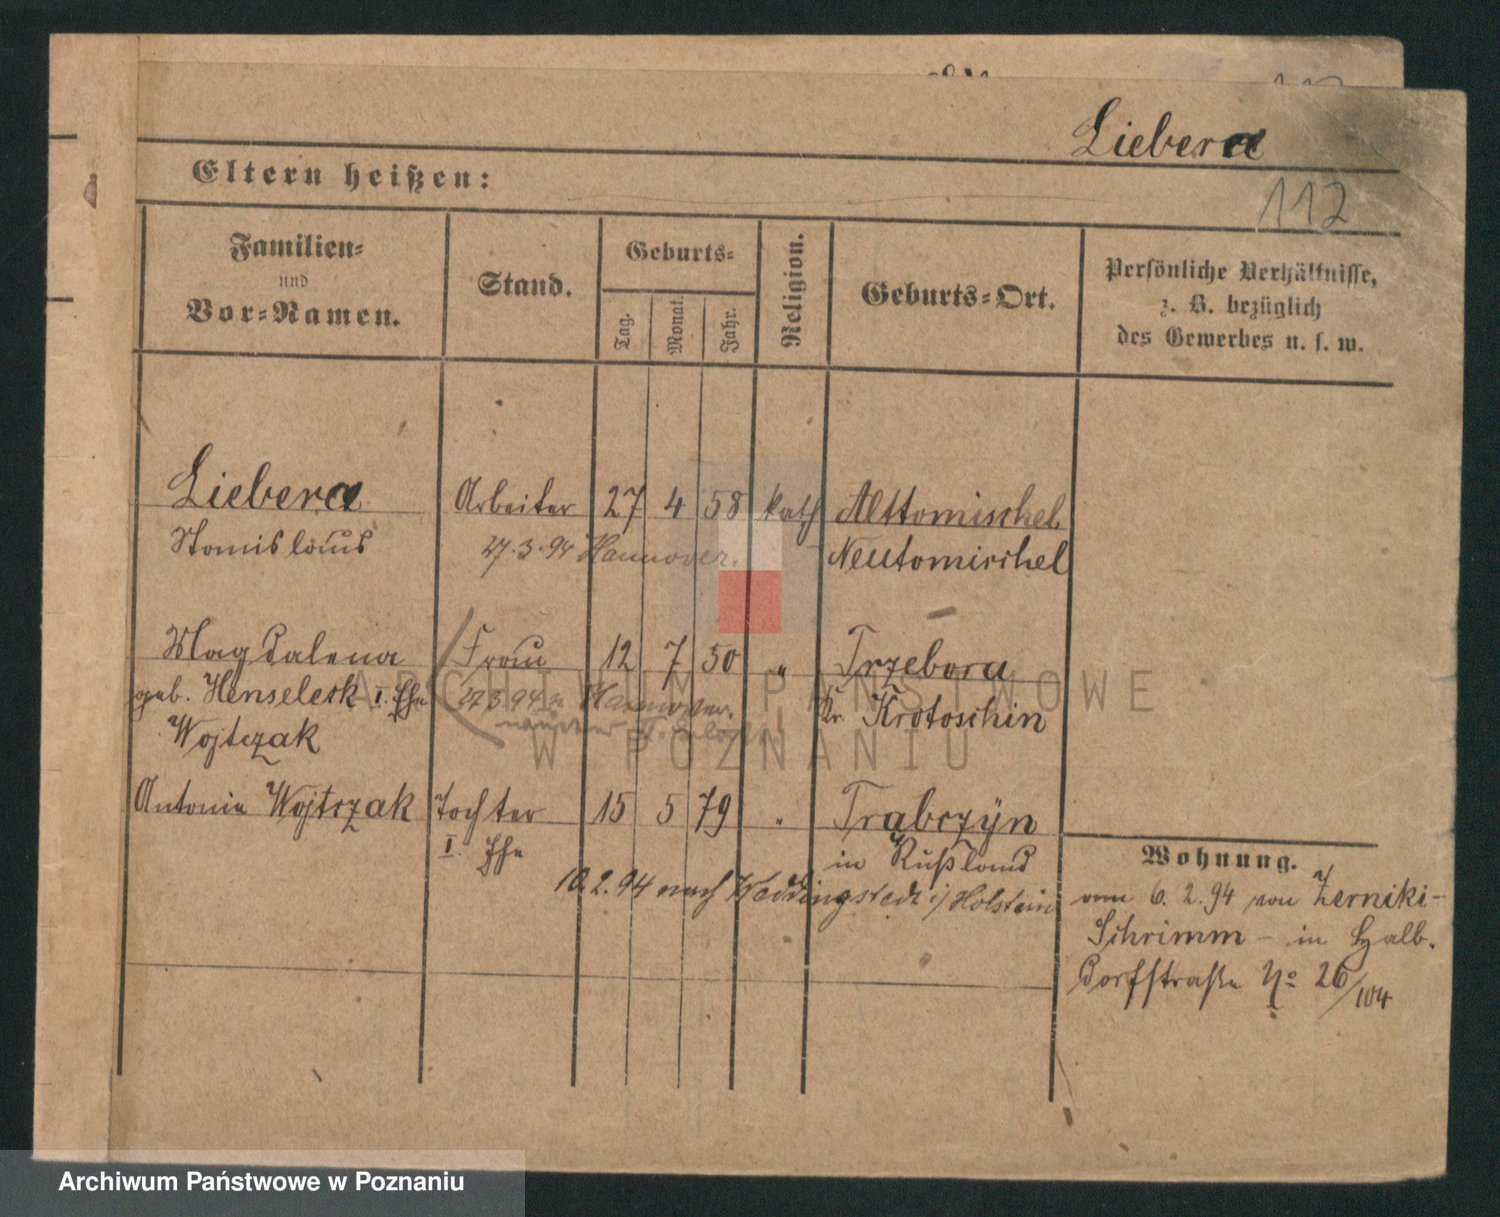 Liebera
112
Eltern heißen:
Familien-
und
Vor-Namen.
Stand.
Geburts-
Tag.
Monat.
Jahr.
Religion.
Geburts-Ort.
Persönliche Verhältnisse,
z. B. bezüglich
des Gewerbes u. s. w.
Liebera Arbeiter 27 4 58 kath Alttomischel
Stanislaus 27.3.94 Hannover. Neutomischel
Magdalena Frau 12 7 50 " Trzebora
geb. Henselek I. Ehe 27.3.94 n Hannover. Kr. Krotoschin
Wojtczak
Antonie Wojtczak Tochter 15 5 79 " Trąbczÿn
I. Ehe in Rußland
10.2.94 nach Weddingstedt i/Holstein
Wohnung.
vom 6.2.94 von Zerniki-
Schrimm - in Halb-
dorfstraße No 26/104
ARCHIWUM PAŃSTWOWE
W POZNANIU
Archiwum Państwowe w Poznaniu